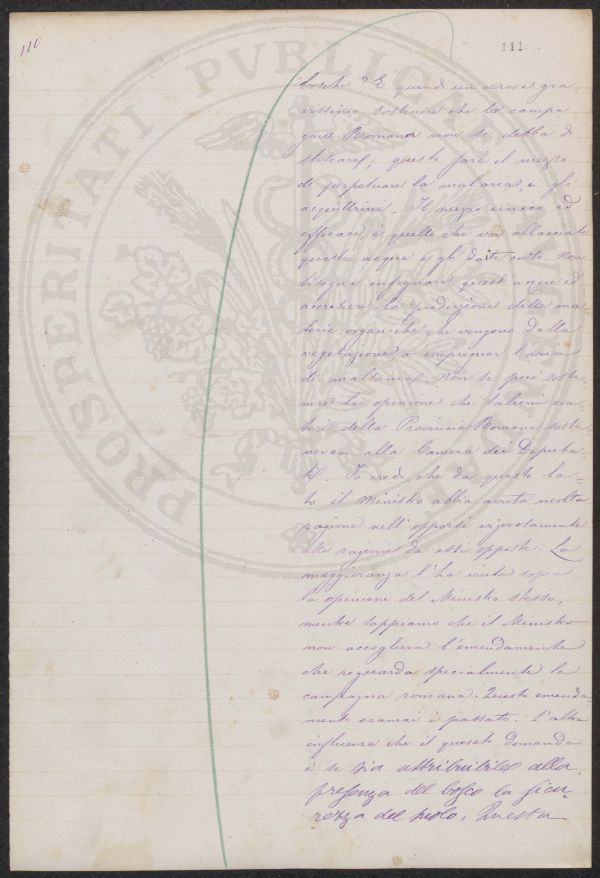 110
111
boschi? E quindi un errore gra-
vissimo sostenere che la campa-
gna Romana non si debba di-
sboscare; questo sarà il mezzo
di perpetuare la malaria e gli
acquitrini. Il mezzo unico ed
efficace è quello che si allaccino
queste acque e gli si dia corso. Non
bisogna queste acque ed
accrescere la produzione delle ma-
terie organiche che vengono dalla
vegetazione a impregnar l'aria
di malsania. Non si può soste-
nere la opinione che taluni ora-
tori della Provincia Romana soste-
nevano alla Camera dei Deputa-
ti. Io credo che da questo la-
to il Ministro abbia avuta molta
ragione nell'opporsi vigorosamente
alle ragioni da essi opposte. La
maggioranza l'ha vinta sopra
la opinione del Ministro stesso,
mentre sappiamo che il Ministro
non accoglieva l'emendamento
che riguarda specialmente la
campagna romana. Questo emenda-
mento oramai è passato. L'altra
influenza che il quesito domanda
è se sia attribuibile alla
presenza del bosco la sicu-
rezza del suolo. Questa
PROSPERITATI PVBLICAE AVGENDAE